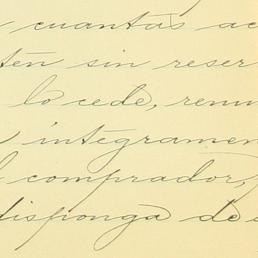 cuantas ac
tén sin reser
lo cede, renu
integramen
comprador,
disponga de